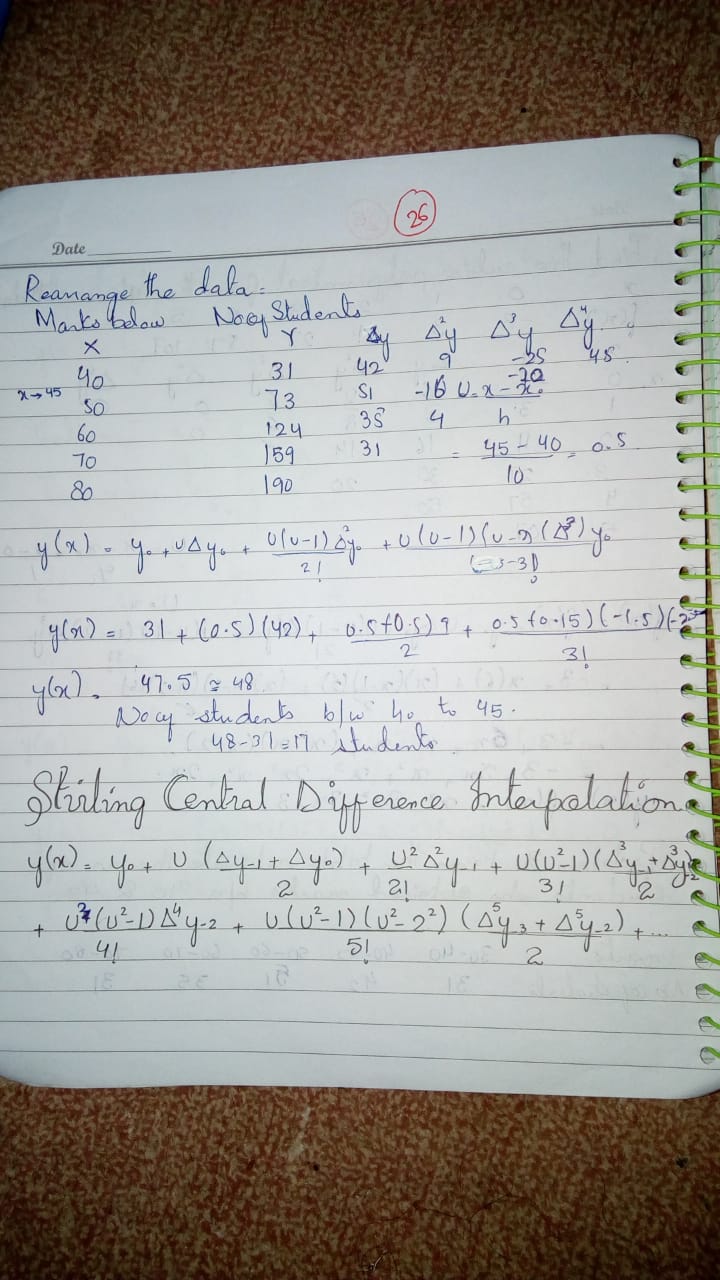 26
Date
Rearrange the data:
Marks below No of Students
X Y Δy Δ²y Δ³y Δ⁴y
40 31 42 9 -25 45
x→45 50 73 51 -16 U = x - x₀
60 124 35 4 h
70 159 31 = 45 - 40 = 0.5
80 190 10
y(x) = y₀ + UΔy₀ + U(U-1) Δ²y₀ + U(U-1)(U-2)(Δ³)y₀
2! 3!
y(x) = 31 + (0.5)(42) + 0.5(0.5)9 + 0.5(0.15)(-1.5)(-25
2 3!
y(x) = 47.5 ≅ 48
No of students b/w 40 to 45.
48-31=17 students
Stirling Central Difference Interpolation
y(x) = y₀ + U (Δy₋₁ + Δy₀) + U²Δ²y₋₁ + U(U²-1)(Δ³y₋₁ + Δ³y₋₂
2 2! 3! 2
+ U²(U²-1)Δ⁴y₋₂ + U(U²-1)(U²-2²)(Δ⁵y₋₃ + Δ⁵y₋₂) + ...
4! 5! 2